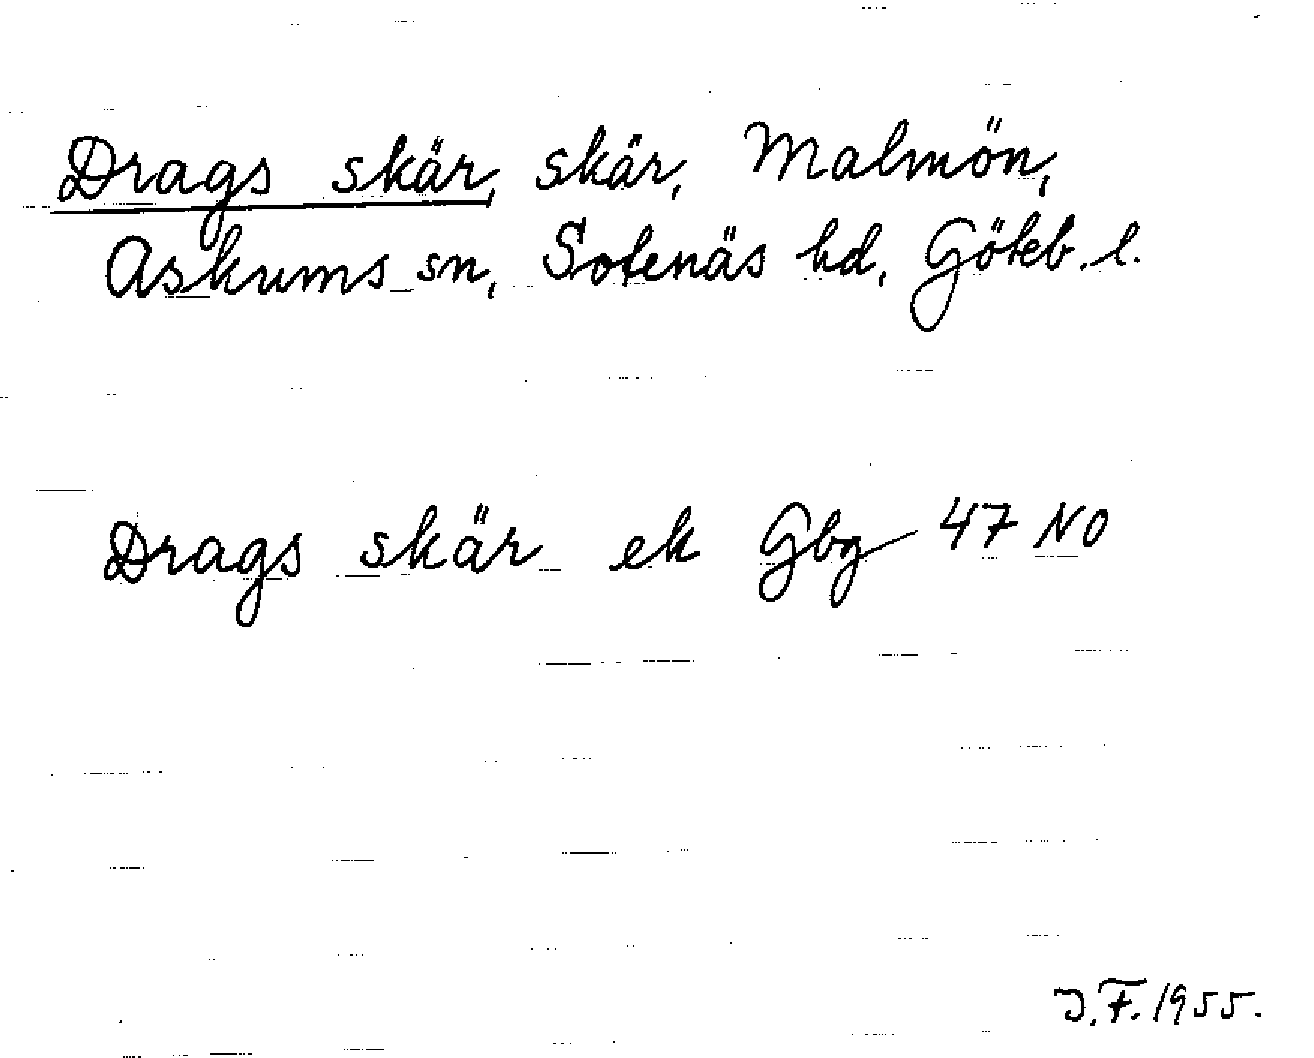 Drags skär, skär, Malmön,
Askums sn, Sotenäs hd, Göteb. l.
Drags skär ek Gbg 47 NO
J.F. 1955.